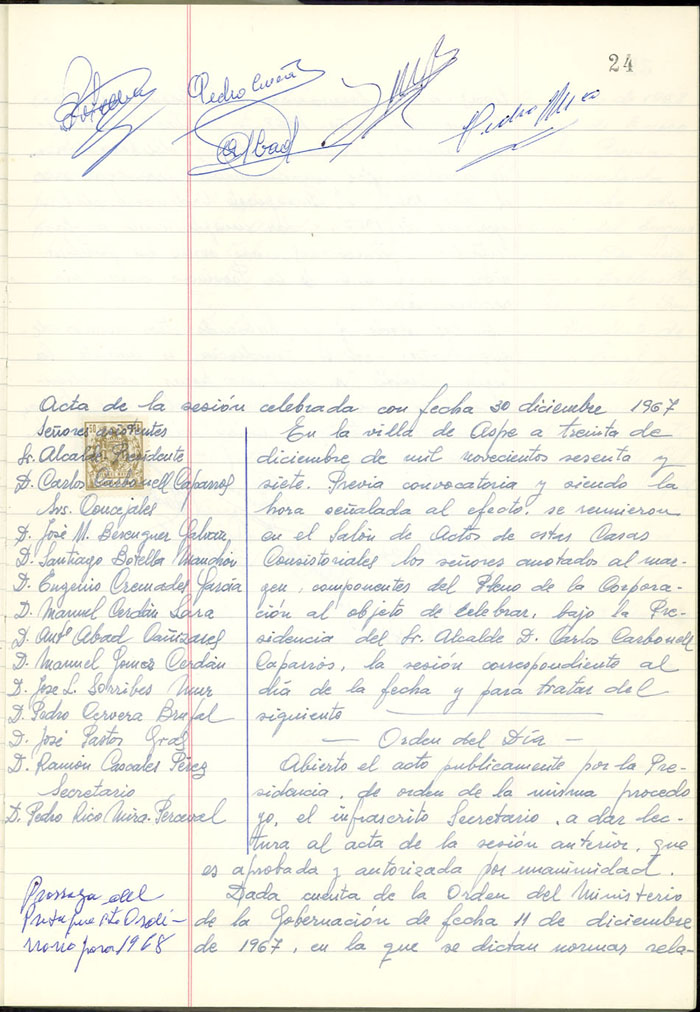 24
Pedro Cervera
Abad
Pedro Rico
Acta de la sesión celebrada con fecha 30 diciembre 1967
Señores asistentes
Sr. Alcalde Presidente
D. Carlos Carbonell Caparrós
Srs. Concejales
D. José M. Berenguer Galvañ
D. Santiago Botella Manchón
D. Eugenio Cremades García
D. Manuel Cerdán Lara
D. Antº Abad Cañizares
D. Manuel Gomez Cerdán
D. Jose L. Sorribes Mur
D. Pedro Cervera Brufal
D. José Pastor Gras
D. Ramón Cascales Pérez
Secretario
D. Pedro Rico Mira-Perceval
En la villa de Aspe a treinta de
diciembre de mil novecientos sesenta y
siete. Previa convocatoria y siendo la
hora señalada al efecto, se reunieron
en el Salón de Actos de estas Casas
Consistoriales los señores anotados al mar-
gen, componentes del Pleno de la Corpora-
ción al objeto de celebrar, bajo la Pre-
sidencia del Sr. Alcalde D. Carlos Carbonell
Caparrós, la sesión correspondiente al
día de la fecha y para tratar del
siguiente
— Orden del Día —
Abierto el acto publicamente por la Pre-
sidencia, de orden de la misma procedo
yo, el infrascrito Secretario, a dar lec-
tura al acta de la sesión anterior, que
es aprobada y autorizada por unanimidad.
Prorroga del
Presupuesto Ordi-
nario para 1968
Dada cuenta de la Orden del Ministerio
de la Gobernación de fecha 11 de diciembre
de 1967, en la que se dictan normas rela-